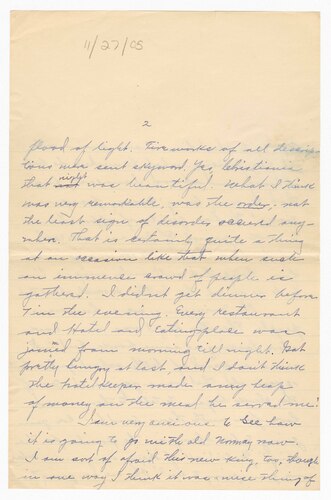 11/27/05
2
flood of light. Fireworks of all descrip-
tions were sent skyward. Yes, Christiania
that night was beautiful. What I think
was very remarkable, was the order. not
the least sign of disorder occured any-
where. That is certainly quite a thing
at an occasion like that when such
an immense crowd of people is
gathered. I didn't get dinner before
7 in the evening. Every restaurant
and Hotel and Eatingplace was
jamed from morning till night. Got
pretty hungry at last and I don't think
the hotel keeper made a very heap
of money on the meal he served me!
I am very anxious to see how
it is going to go with old Norway now.
I am sort of afraid this new king, too, though
in one way I think it was a nice thing of